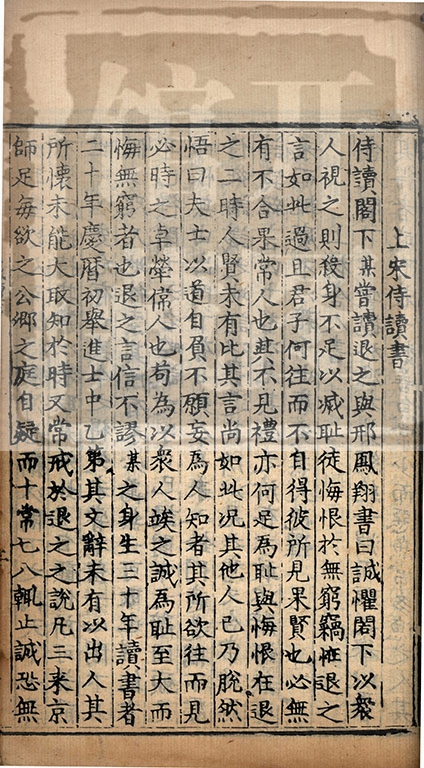 上宋侍讀書
侍讀閣下某嘗讀退之與邢鳳翔書曰誠懼閣下以衆
人視之則殺身不足以滅耻徒悔恨於無窮竊恠退之
言如此過且君子何往而不自得彼所見果賢也必無
有不合果常人也其不見禮亦何足為耻與悔恨在退
之二時人賢未有比其言尚如此况其他人已乃脫然
悟曰夫士以道自負不願妄為人知者其所欲往而見
必時之卓犖偉人也苟為以衆人竢之誠為耻至大而
悔無窮者也退之言信不謬某之身生三十年讀書者
二十年慶曆初舉進士中乙第其文辭未有以出人其
所懷未能大取知於時又常戒於退之之說凡三来京
師足每欲之公卿之庭自疑而十常七八輒止誠恐無